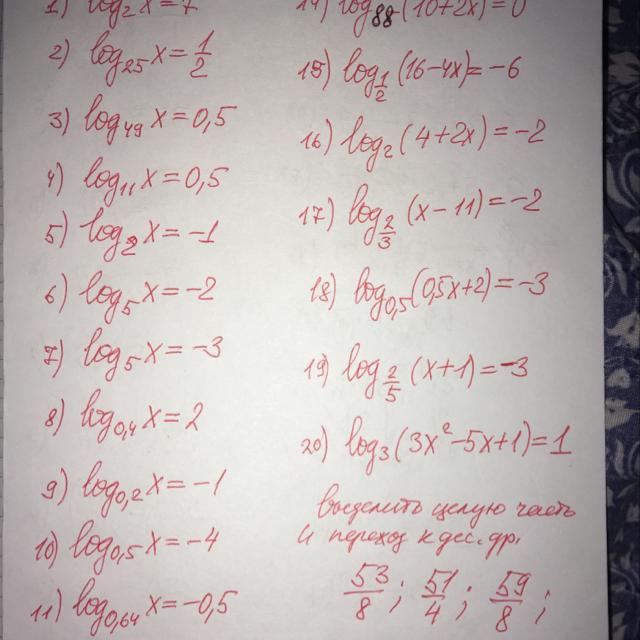 1) log₂ x = 7
2) log₂₅ x = 1/2
3) log₄₉ x = 0,5
4) log₁₁ x = 0,5
5) log₂ x = -1
6) log₅ x = -2
7) log₅ x = -3
8) log₀,₄ x = 2
9) log₀,₂ x = -1
10) log₀,₅ x = -4
11) log₀,₆₄ x = -0,5
14) log₈₈ (10+2x) = 0
15) log_{1/2} (16-4x) = -6
16) log₂ (4+2x) = -2
17) log_{2/3} (x-11) = -2
18) log₀,₅ (0,5x+2) = -3
19) log_{2/5} (x+1) = -3
20) log₃ (3x²-5x+1) = 1
выделить целую часть
и переход к дес. др.
53/8 ; 51/4 ; 59/8 ;